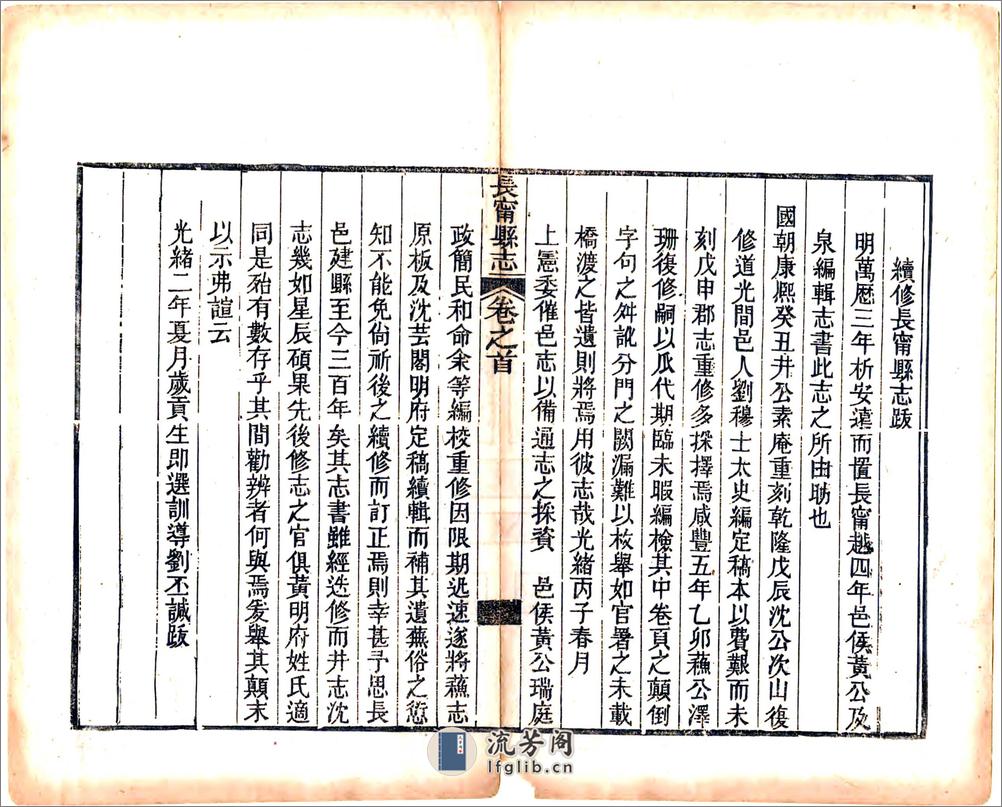 續修長甯縣志跋
明萬厯三年析安遠而置長甯越四年邑侯黃公及
泉編輯志書此志之所由昉也
國朝康熙癸丑井公素庵重刻乾隆戊辰沈公次山復
修道光間邑人劉穆士太史編定稿本以費艱而未
刻戊申郡志重修多採擇焉咸豐五年乙卯蘓公澤
珊復修嗣以瓜代期臨未暇編檢其中卷頁之顛倒
字句之舛訛分門之闕漏難以枚舉如官署之未載
橋渡之皆遺則將焉用彼志哉光緒丙子春月
上憲委催邑志以備通志之採資 邑侯黃公瑞庭
長甯縣志 卷之首
政簡民和命余等編校重修因限期迅速遂將蘓志
原板及沈芸閣明府定稿續輯而補其遺蕪俗之愆
知不能免尙祈後之續修而訂正焉則幸甚予思長
邑建縣至今三百年矣其志書雖經迭修而井志沈
志幾如星辰碩果先後修志之官俱黃明府姓氏適
同是殆有數存乎其間勸辨者何與焉爰舉其顛末
以示弗諠云
光緒二年夏月歲貢生即選訓導劉丕諴跋
流芳阁
lfglib.cn